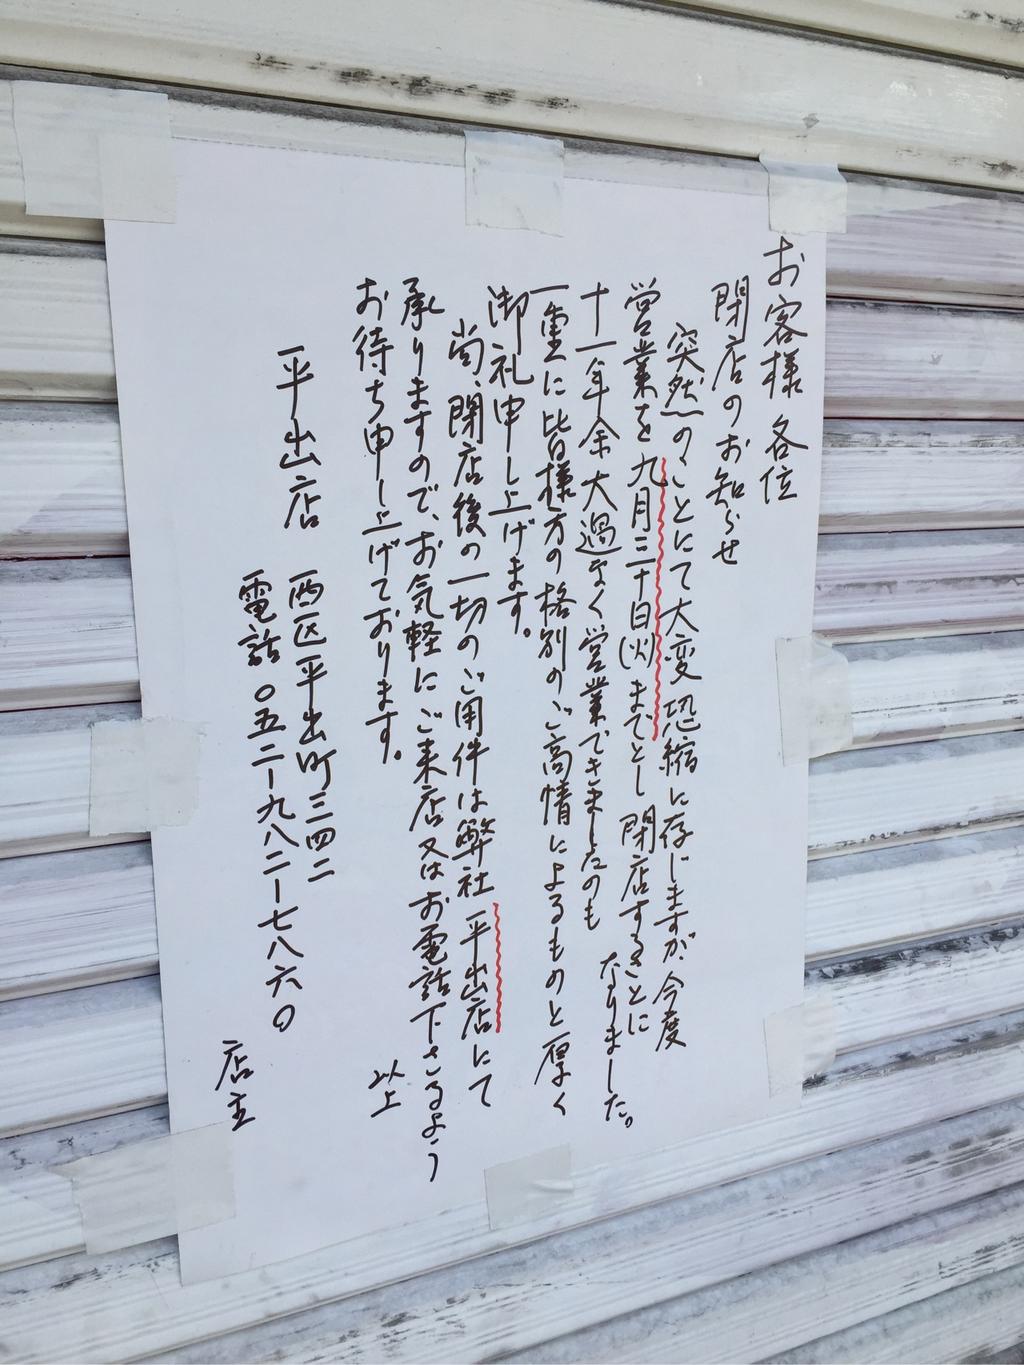 お客様各位
閉店のお知らせ
突然のことにて大変恐縮に存じますが、今度
営業を九月三十日(火)までとし閉店することに
なりました。
十一年余大過なく営業できましたのも
一重に皆様方の格別のご高情によるものと厚く
御礼申し上げます。
尚、閉店後の一切のご用件は弊社平出店にて
承りますので、お気軽にご来店又はお電話下さるよう
お待ち申し上げております。
以上
平出店 西区平出町三四二
電話〇五二ー九八二ー七八六〇
店主